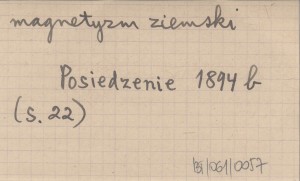 magnetyzm ziemski
Posiedzenie 1894 b
(s. 22)
BI/061/0057